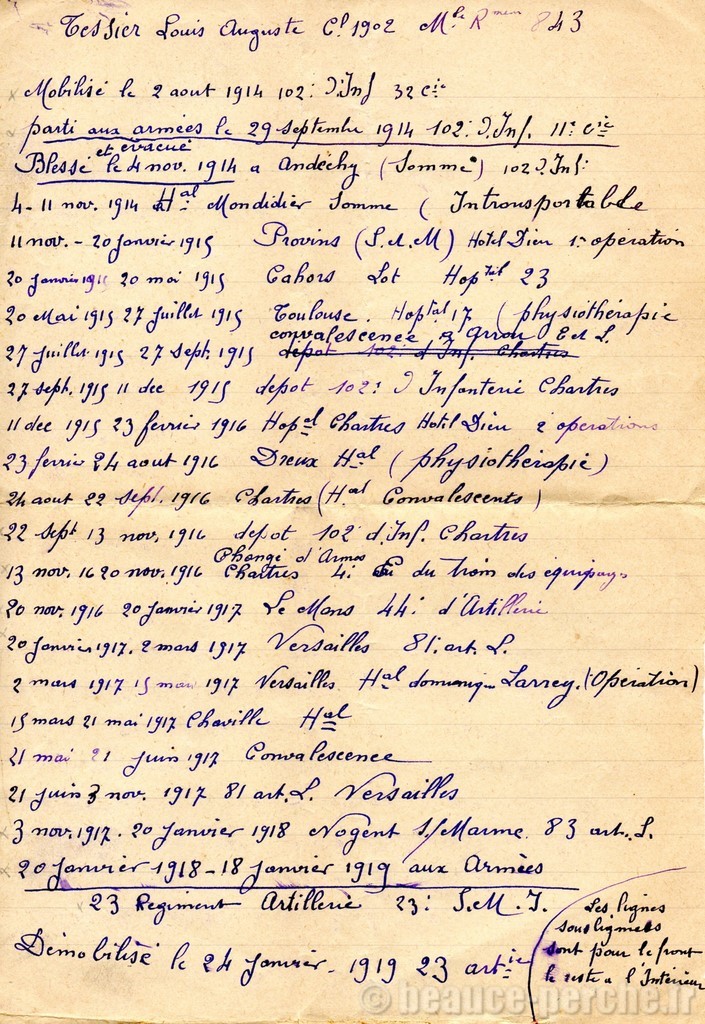 Tessier Louis Auguste Cl 1902 Mle Rmem 843
Mobilisé le 2 aout 1914 102e d'Inf 32 Cie
parti aux armées le 29 septembre 1914 102e d'Inf. 11e Cie
et évacué
Blessé le 4 nov. 1914 a Andechy (Somme) 102 d'Inf
4 - 11 nov. 1914 Hal Mondidier Somme ( Intransportable
11 nov. - 20 janvier 1915 Provins (S. et. M) Hotel Dieu 1e opération
20 janvier 1915 20 mai 1915 Cahors Lot Hoptal 23
20 Mai 1915 27 juillet 1915 Toulouse. Hoptal 17 ( physiothérapie
convalescence a Arrou E et L.
27 juillet 1915 27 Sept. 1915 depot 102e d'Inf. Chartres
27 sept. 1915 11 dec 1915 depot 102e d'Infanterie Chartres
11 dec 1915 23 fevrier 1916 Hopal Chartres Hotel Dieu 2 operations
23 fevrier 24 aout 1916 Dreux Hal (physiothérapie)
24 aout 22 sept. 1916 Chartres (Hal Convalescents)
22 sept 13 nov. 1916 depot 102 d'Inf. Chartres
Changé d'Armes
13 nov. 16 20 nov. 1916 Chartres 4e du train des équipages
20 nov. 1916 20 janvier 1917 Le Mans 44e d'Artillerie
20 janvier 1917. 2 mars 1917 Versailles 81e. art. L.
2 mars 1917 15 mars 1917 Versailles Hal dominique Larrey. (Opération)
15 mars 21 mai 1917 Chaville Hal
21 mai 21 juin 1917 Convalescence
21 juin 3 nov. 1917 81 art. L. Versailles
3 nov. 1917. 20 janvier 1918 Nogent S/Marne. 83 art. L.
20 janvier 1918 - 18 janvier 1919 aux Armées
23 Regiment Artillerie 23e S.M.I.
Démobilisé le 24 janvier. 1919 23 artie
Les lignes
soulignées
sont pour le front
le reste a l'Intérieur
© beauce-perche.fr